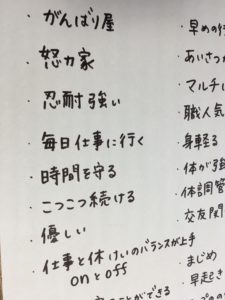 ・がんばり屋
・怒力家
・忍耐強い
・毎日仕事に行く
・時間を守る
・こつこつ続ける
・優しい
・仕事と休けいのバランスが上手
onとoff
ことができる
・早めの行
・あいさつ
・マルチ
・職人気
・身軽る
・体が強
・体調管
・交友関
・まじめ
・早起き